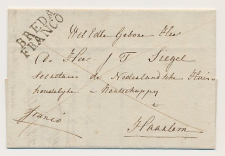 BREDA
FRANCO
Wel Edele Gebore Heer
de Heer J T Siegel
secretaris de Nederlandsche Huis
houdelyke Maatschappy
te
franco
Haarlem